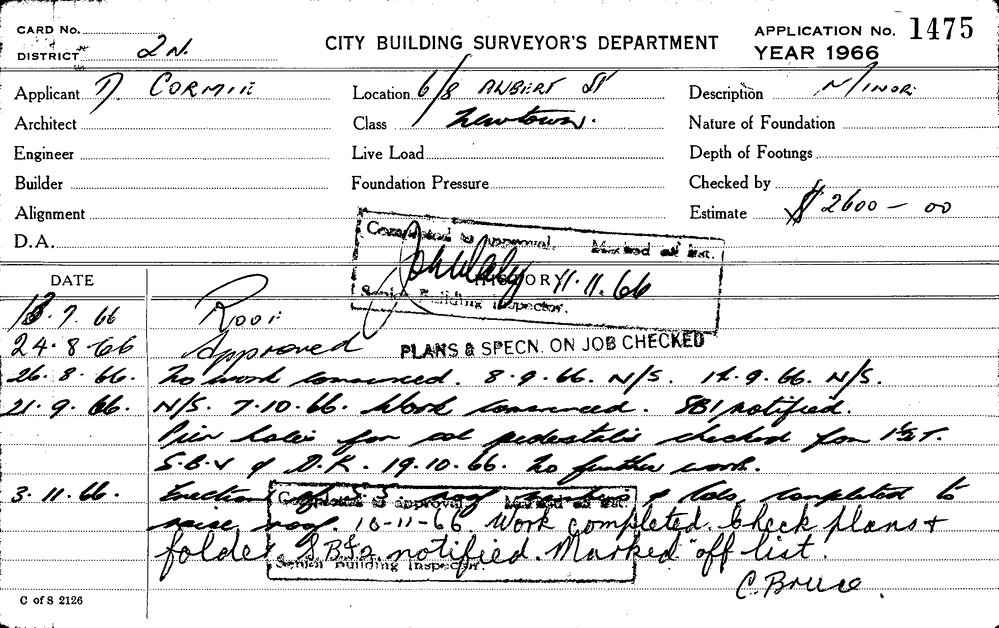 CARD No.
DISTRICT 2 N.
CITY BUILDING SURVEYOR'S DEPARTMENT
APPLICATION No. 1475
YEAR 1966
Applicant D. CORMIE
Location 6/8 ALBERT ST
Description MINOR
Architect
Class Newtown.
Nature of Foundation
Engineer
Live Load
Depth of Footings
Builder
Foundation Pressure
Checked by
Alignment
Estimate $ 2600 – 00
D.A.
Completed to approval. Marked off list.
HISTORY 11.11.66
Senior Building Inspector.
DATE
18.7.66 Roof
24.8.66 Approved PLANS & SPECN. ON JOB CHECKED
26.8.66. No work commenced. 8.9.66. N/S. 14.9.66. N/S.
21.9.66. N/S. 7.10.66. Work commenced. SBI notified.
Pier holes for pedestals checked for 1½T.
S.B.V & D.K. 19.10.66. No further work.
3.11.66. Erection of roof & completed to
raise roof. 10-11-66. Work completed. Check plans +
folder. S.B.I. notified. Marked off list.
Completed to approval Marked off list
Senior Building Inspector.
C. Bruce.
C of S 2126